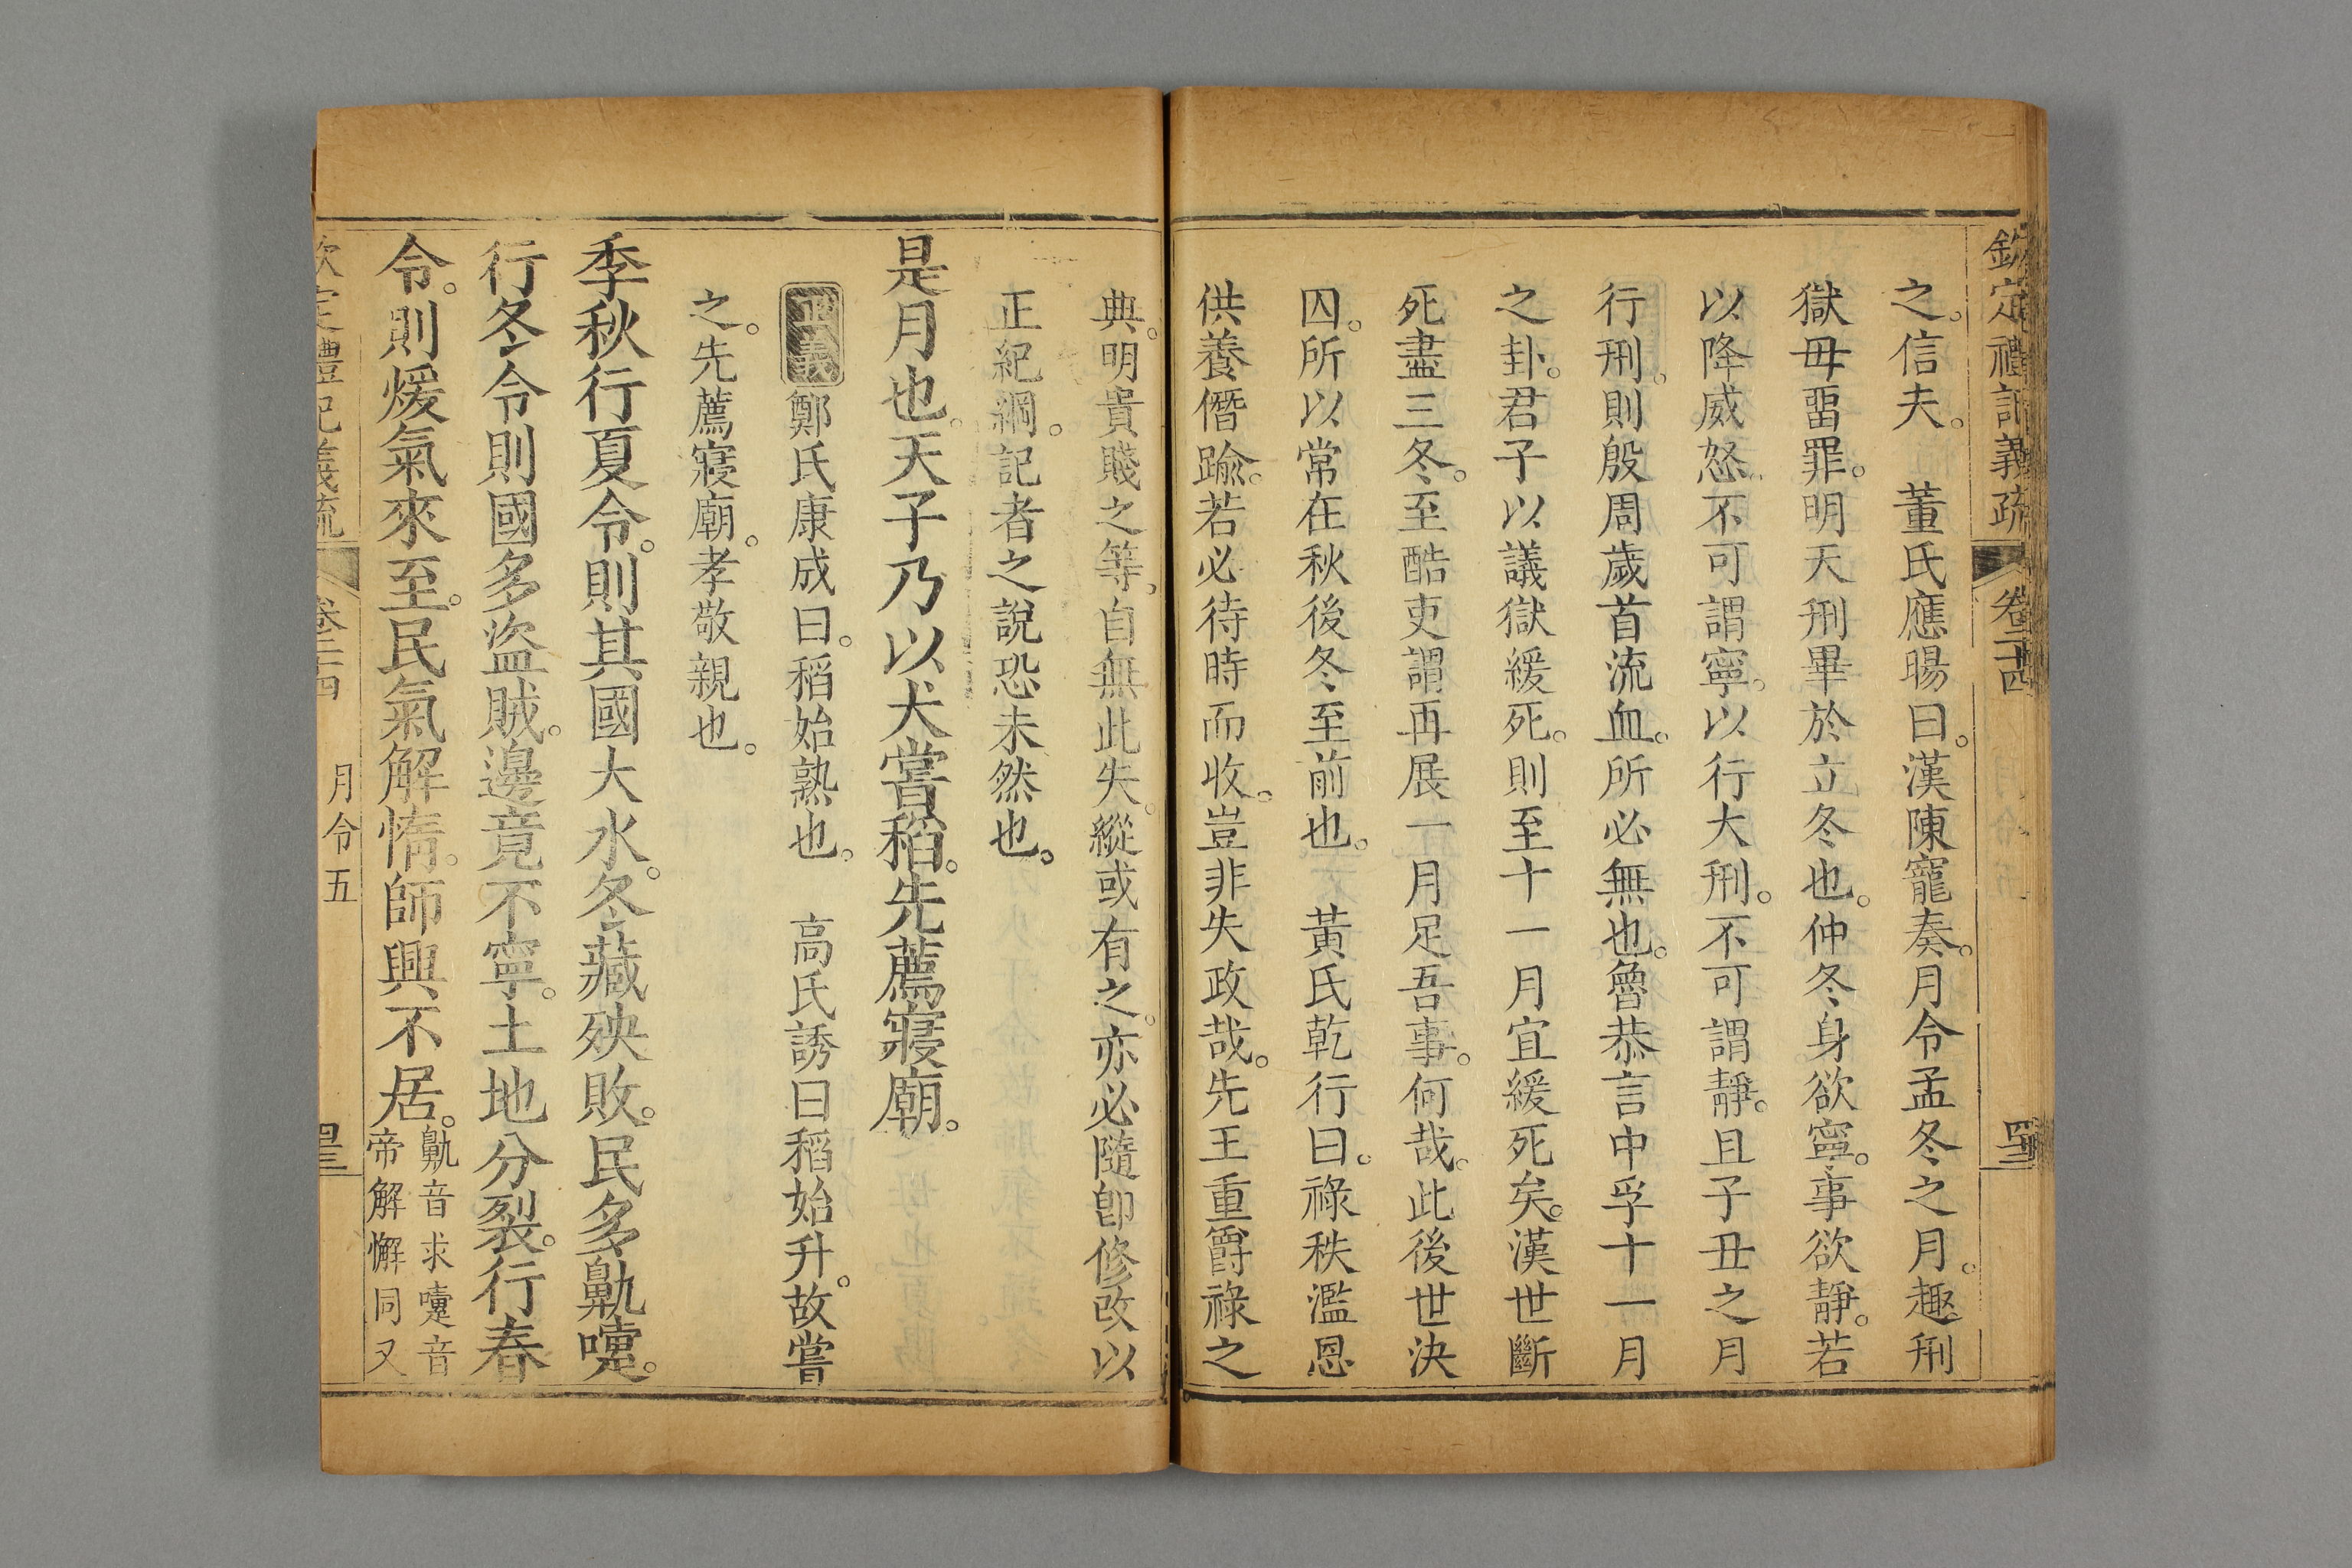 欽定禮記義疏 卷二十四 四三
之。信夫。 董氏應暘曰。漢陳寵奏。月令孟冬之月。趣刑
獄毋畱罪。明天刑畢於立冬也。仲冬身欲寧。事欲靜。若
以降威怒。不可謂寧。以行大刑。不可謂靜。且子丑之月
行刑。則殷周歲首流血。所必無也。魯恭言中孚十一月
之卦。君子以議獄緩死。則至十一月宜緩死矣。漢世斷
死盡三冬。至酷吏謂再展一月足吾事。何哉。此後世決
囚。所以常在秋後冬至前也。 黃氏乾行曰。祿秩濫恩
供養僭踰。若必待時而收。豈非失政哉。先王重爵祿之
典。明貴賤之等。自無此失。縱或有之。亦必隨卽修改以
正紀綱。記者之說恐未然也。
是月也。天子乃以犬嘗稻。先薦寢廟。
正義 鄭氏康成曰。稻始熟也。 高氏誘曰稻始升。故嘗
之。先薦寢廟。孝敬親也。
季秋行夏令。則其國大水。冬藏殃敗。民多鼽嚏。
行冬令則國多盜賊。邊竟不寧。土地分裂。行春
令。則煖氣來至。民氣解惰。師興不居。
鼽音求嚏音
帝解懈同又
欽定禮記義疏 卷二十四 月令五 四三